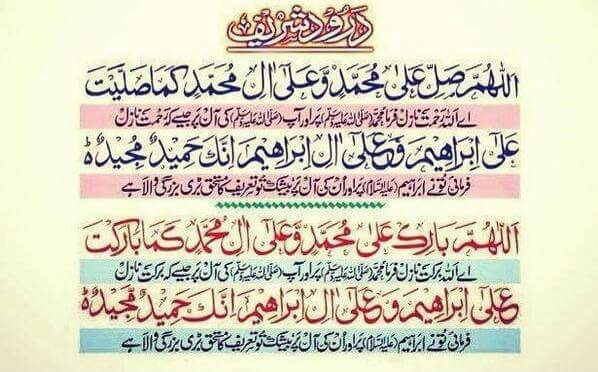 درود شریف
اللهم صل علی محمد و علی ال محمد کما صلیت
اے اللہ رحمت نازل فرما محمد (صلی اللہ علیہ وسلم) پر اور آپ (صلی اللہ علیہ وسلم) کی آل پر جیسے کہ رحمت نازل
علی ابراهیم و علی ال ابراهیم انك حمید مجیدۃ
فرمائی تو نے ابراہیم (علیہ السلام) پر اور ان کی آل پر بیشک تو تعریف کا مستحق بڑی بزرگی والا ہے
اللهم بارك علی محمد و علی ال محمد کما بارکت
اے اللہ برکت نازل فرما محمد (صلی اللہ علیہ وسلم) پر اور آپ (صلی اللہ علیہ وسلم) کی آل پر جیسے کہ برکت نازل
علی ابراهیم و علی ال ابراهیم انك حمید مجیدۃ
فرمائی تو نے ابراہیم (علیہ السلام) پر اور ان کی آل پر بیشک تو تعریف کا مستحق بڑی بزرگی والا ہے